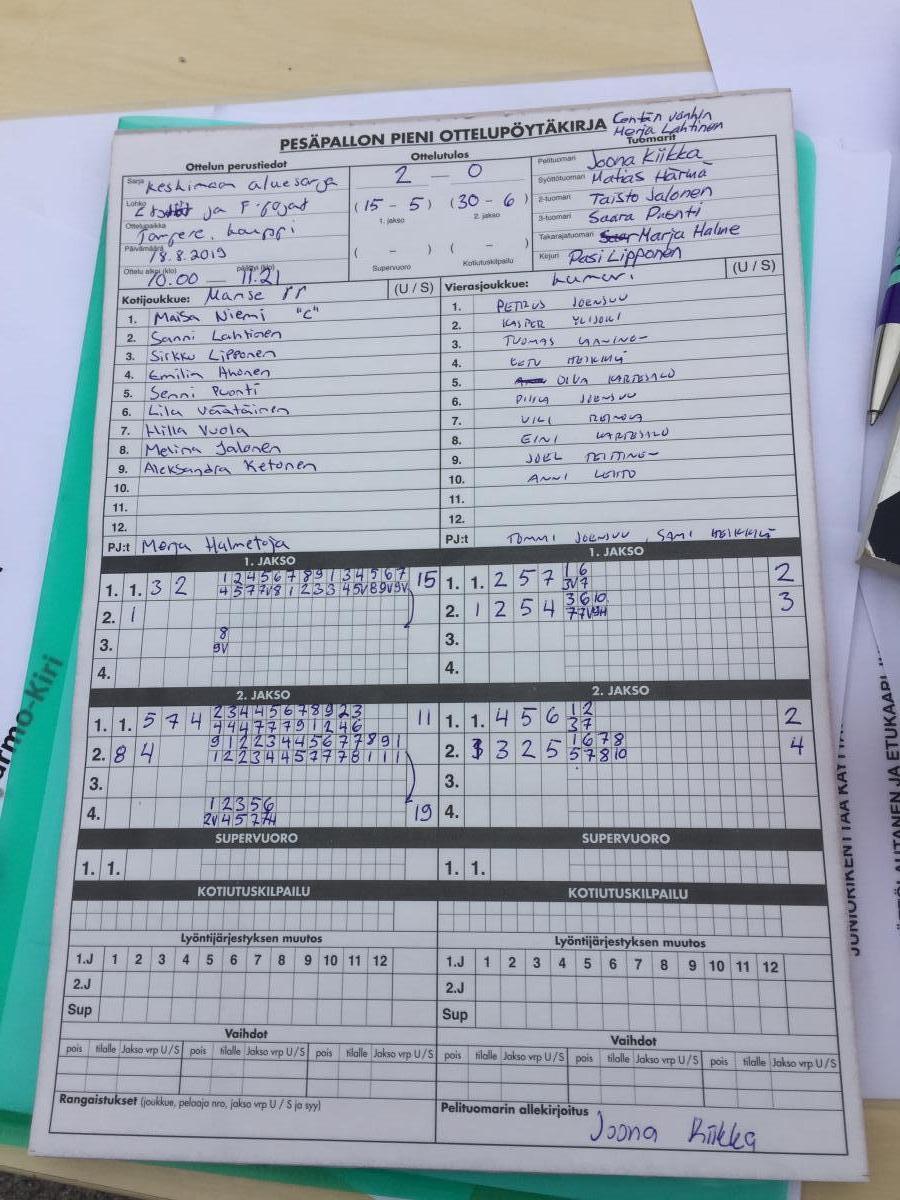 PESÄPALLON PIENI OTTELUPÖYTÄKIRJA
Merja Lahtinen
Ottelun perustiedot
Sarja Keskimaan aluesarja
Lohko ja F-pojat
Ottelupaikka Tampere, kauppi
Päivämäärä 18.8.2019
Ottelu alkoi (klo) 10.00 — päättyi (klo) 11.21
Ottelutulos
2 — 0
(15 - 5) (30 - 6)
1. jakso 2. jakso
( - ) ( - )
Supervuoro Kotiutuskilpailu
Tuomarit
Pelituomari Joona Kiikka
Syöttötuomari Matias Härmä
2-tuomari Taisto Jalonen
3-tuomari Saara Puonti
Takarajatuomari Marja Halme
Kirjuri Pasi Lipponen
Kotijoukkue: Manse PP (U / S)
1. Maisa Niemi "C"
2. Sanni Lahtinen
3. Sirkku Lipponen
4. Emilia Ahonen
5. Senni Puonti
6. Lila Väätäinen
7. Hilla Vuola
8. Melina Jalonen
9. Aleksandra Ketonen
10.
11.
12.
PJ:t Merja Halmetoja
Vierasjoukkue: (U / S)
1. PETRUS JOENSUU
2. KASPER YLIJOKI
3. TUOMAS
4. EETU HEIKKILÄ
5. OIVA KARTESALO
6. JOENSUU
7.
8. EINI KARTESALO
9. JOEL
10. ANNI LEHTO
11.
12.
PJ:t TOMMI JOENSUU, SAMI HEIKKILÄ
1. JAKSO
1. 1. 3 2 1 2 4 5 6 7 8 9 1 3 4 5 6 7 15
2. 1
3. 8
9V
4.
1. JAKSO
1. 1. 2 5 7 1 6 2
3V 7
2. 1 2 5 4 3 6 10 3
3.
4.
2. JAKSO
1. 1. 5 7 4 2 3 4 4 5 6 7 8 9 2 3 11
4 4 4 7 7 7 9 1 2 4 6
2. 8 4 9 1 2 2 3 4 4 5 6 7 7 8 9 1
1 2 2 3 4 4 5 7 7 7 8 1 1 1
3.
4. 1 2 3 5 6 19
2. JAKSO
1. 1. 4 5 6 1 2 2
3 7
2. 3 2 5 1 6 7 8 4
5 7 8 10
3.
4.
SUPERVUORO
1. 1.
SUPERVUORO
1. 1.
KOTIUTUSKILPAILU
KOTIUTUSKILPAILU
Lyöntijärjestyksen muutos
1.J 1 2 3 4 5 6 7 8 9 10 11 12
2.J
Sup
Lyöntijärjestyksen muutos
1.J 1 2 3 4 5 6 7 8 9 10 11 12
2.J
Sup
Vaihdot
pois tilalle Jakso vrp U / S pois tilalle Jakso vrp U / S pois tilalle Jakso vrp U / S
Vaihdot
pois tilalle Jakso vrp U / S pois tilalle Jakso vrp U / S pois tilalle Jakso vrp U / S
Rangaistukset (joukkue, pelaaja nro, jakso vrp U / S ja syy)
Pelituomarin allekirjoitus
Joona Kiikka